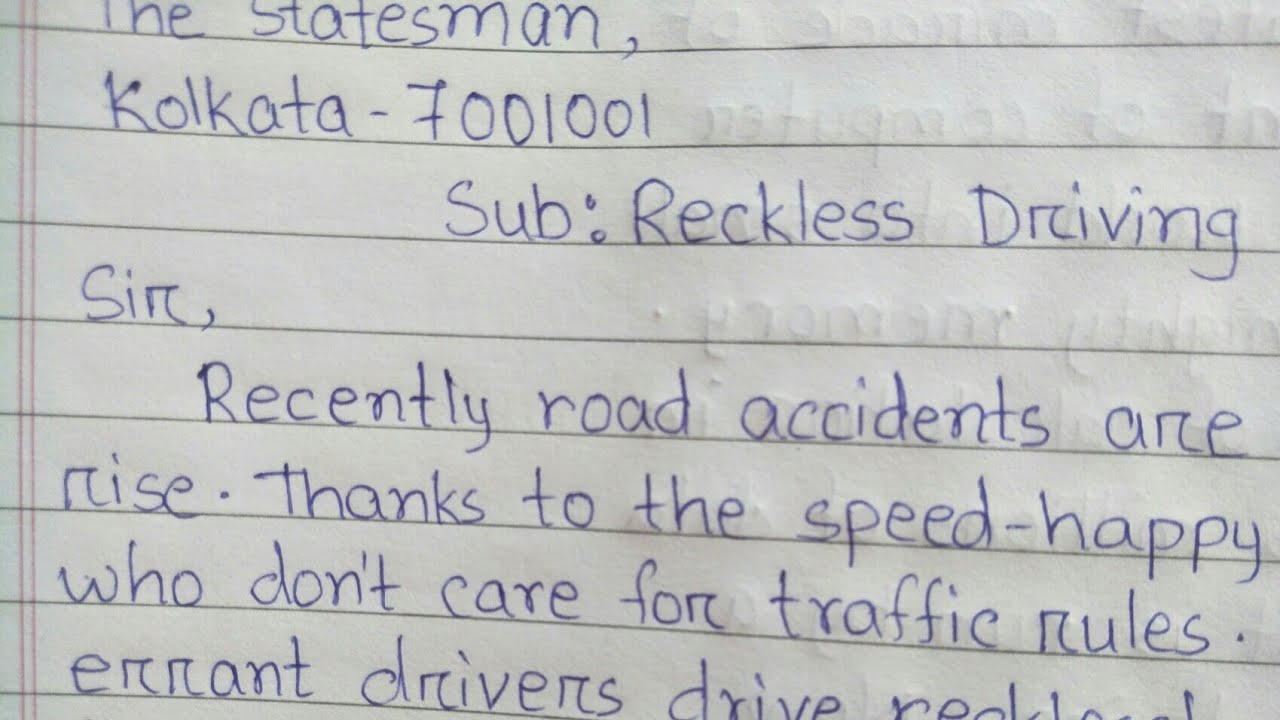 The Statesman,
Kolkata - 7001001
Sub: Reckless Driving
Sir,
Recently road accidents are
rise. Thanks to the speed-happy
who don't care for traffic rules.
errant drivers drive